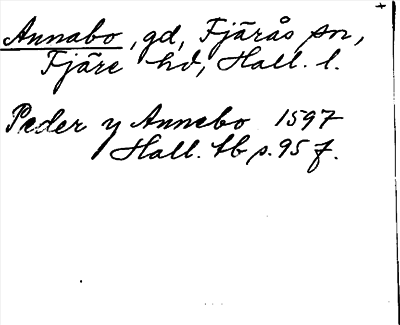 Annabo, gd, Fjärås sn,
Fjäre hd, Hall. l.
Peder y Annebo 1597
Hall. tb s. 95 f.